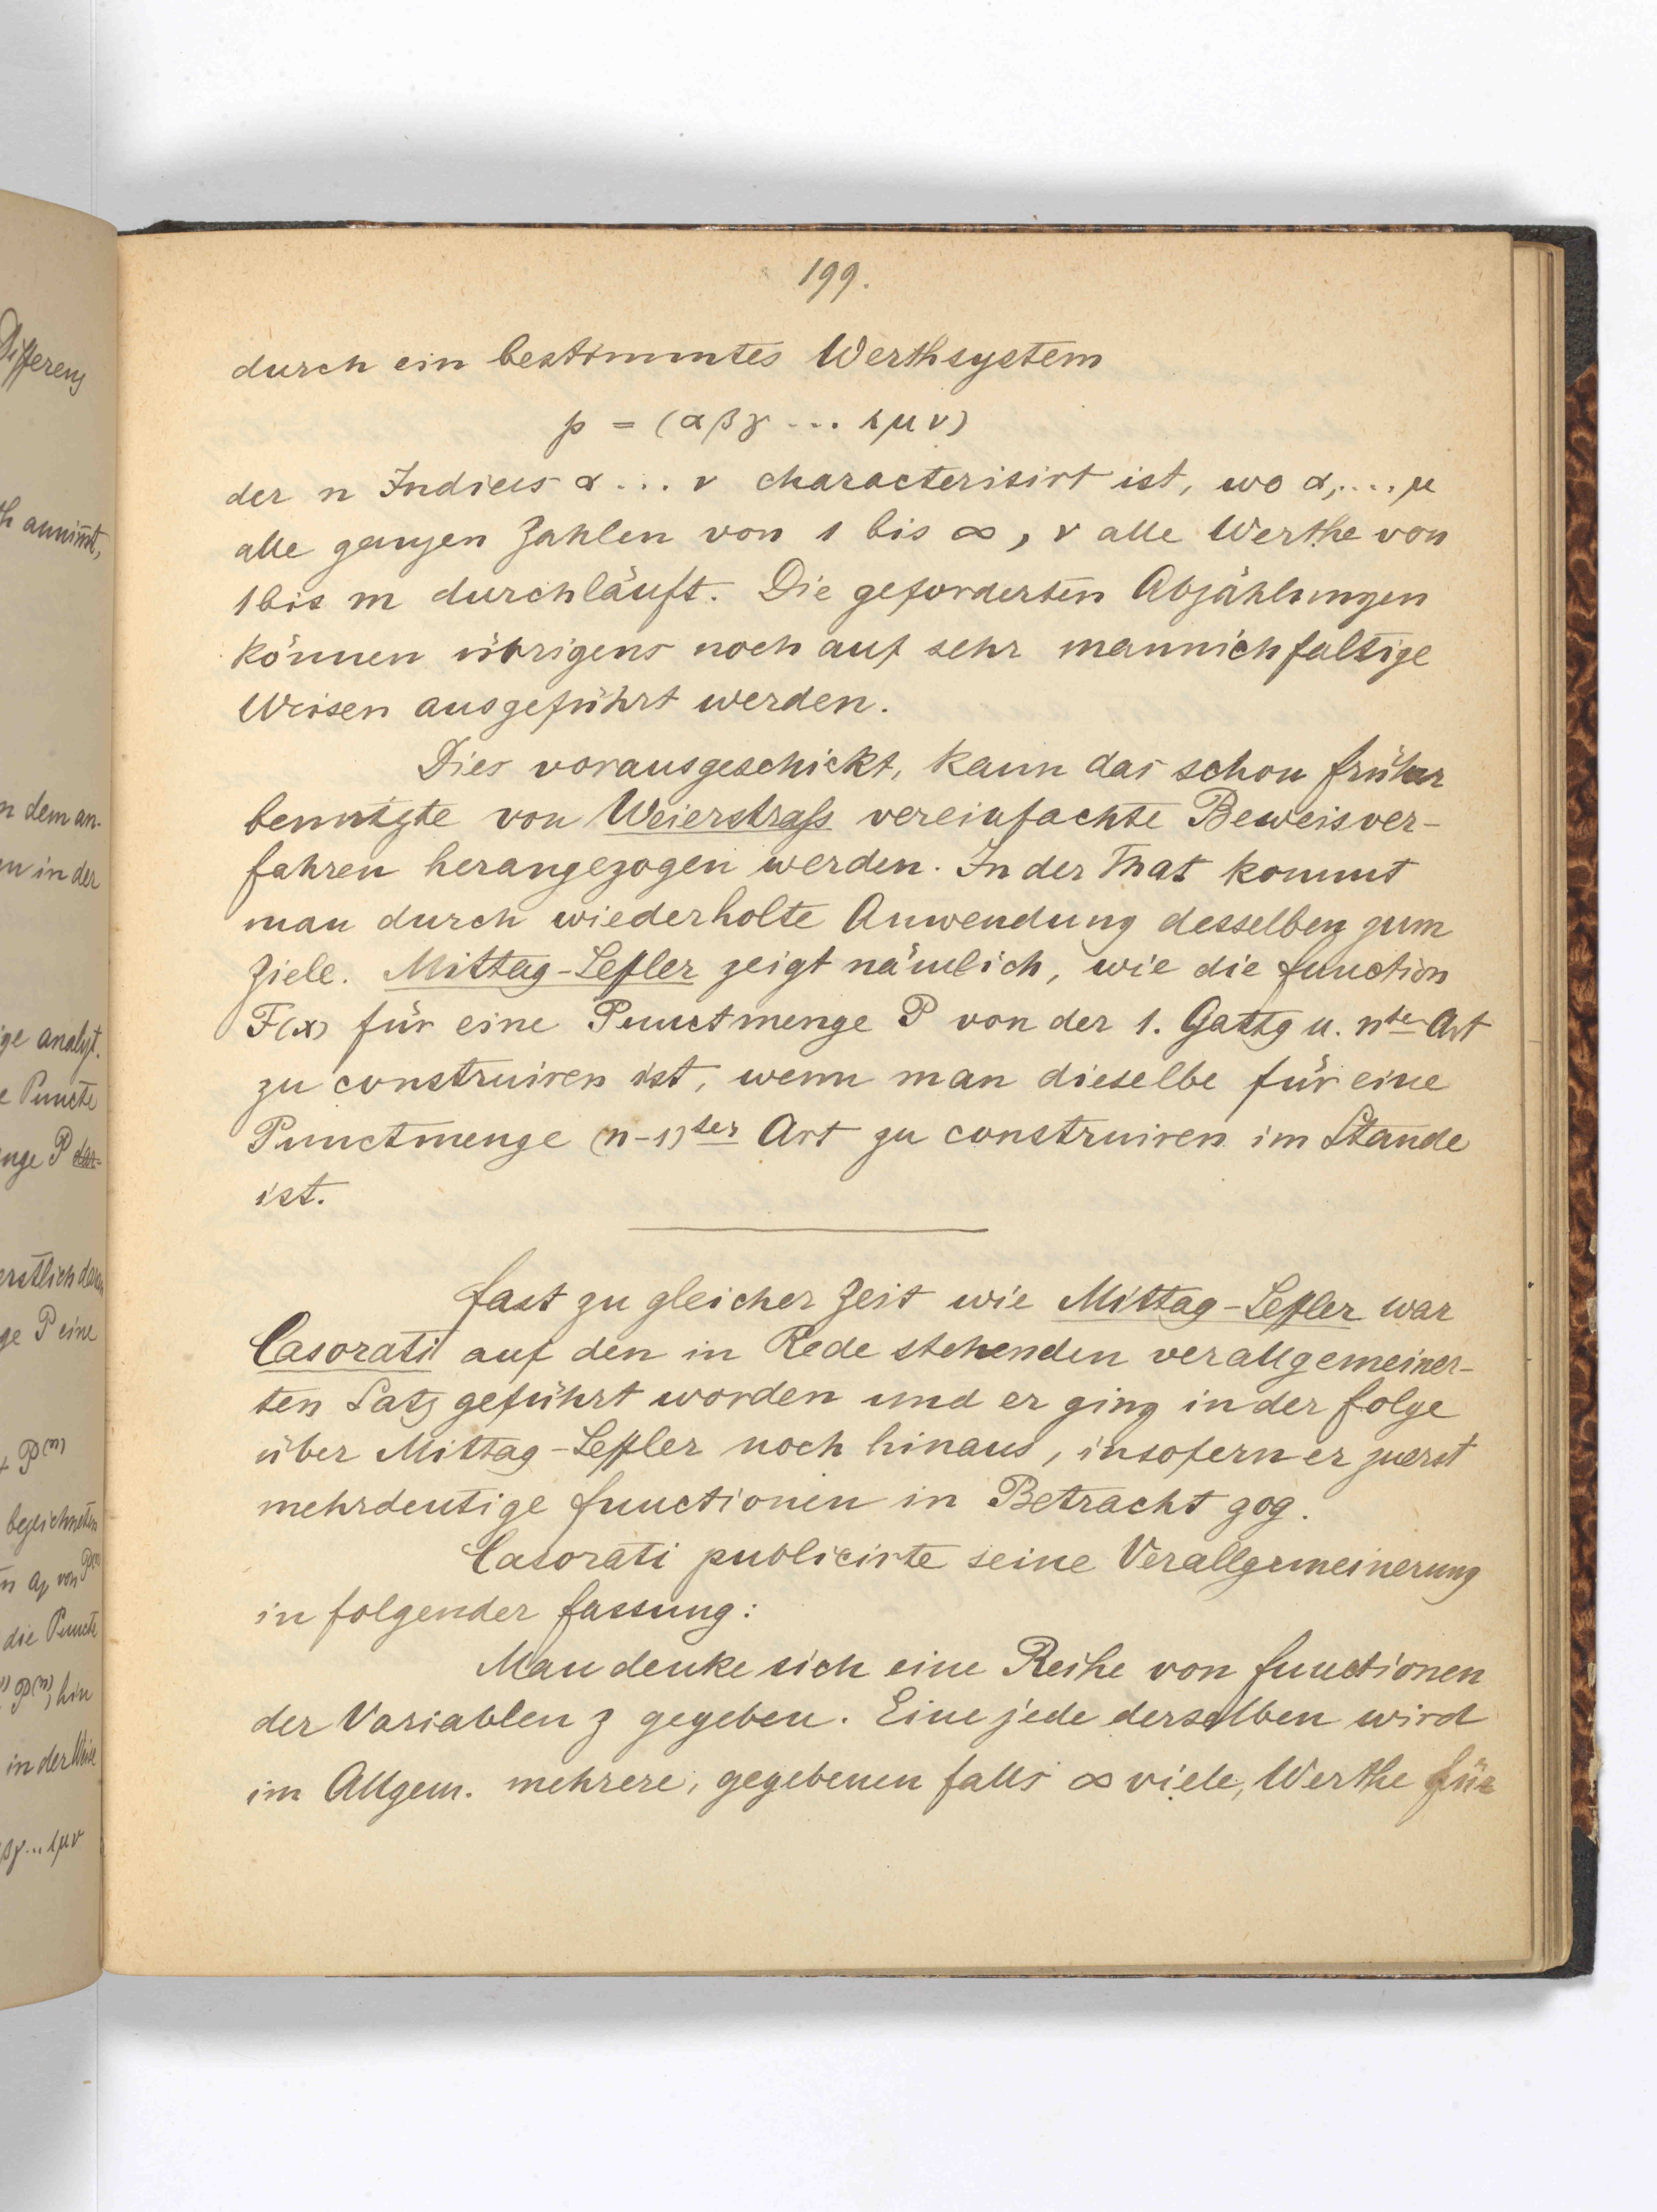 199.
durch ein bestimmtes Werthsystem
p = (αβγ ... ιμν)
der n Indices α ... ν characterisirt ist, wo α, ... μ
alle ganzen Zahlen von 1 bis ∞, ν alle Werthe von
1 bis m durchläuft. Die geforderten Abzählungen
können übrigens noch auf sehr mannichfaltige
Weisen ausgeführt werden.
Dies vorausgeschickt, kann das schon früher
benutzte von Weierstraß vereinfachte Beweisver-
fahren herangezogen werden. In der That kommt
man durch wiederholte Anwendung desselben zum
Ziele. Mittag-Lefler zeigt nämlich, wie die Function
F(x) für eine Punctmenge P von der 1. Gattg u. nte Art
zu construiren ist, wenn man dieselbe für eine
Punctmenge (n-1)ter Art zu construiren im Stande
ist.
Fast zu gleicher Zeit wie Mittag-Leffler war
Casorati auf den in Rede stehenden verallgemeiner-
ten Satz geführt worden und er ging in der Folge
über Mittag-Leffler noch hinaus, insofern er zuerst
mehrdeutige Functionen in Betracht zog.
Casorati publicirte seine Verallgemeinerung
in folgender Fassung:
Man denke sich eine Reihe von Functionen
der Variablen z gegeben. Eine jede derselben wird
im Allgem. mehrere, gegebenen falls ∞ viele, Werthe für
Differenz
annimmt,
n dem an-
in der
ige analyt.
Puncte
nge P
erstlich
ge P eine
P(n)
bezeichneten
von P(n)
die Puncte
P(n), hin
in der Weise
βγ...ιμν